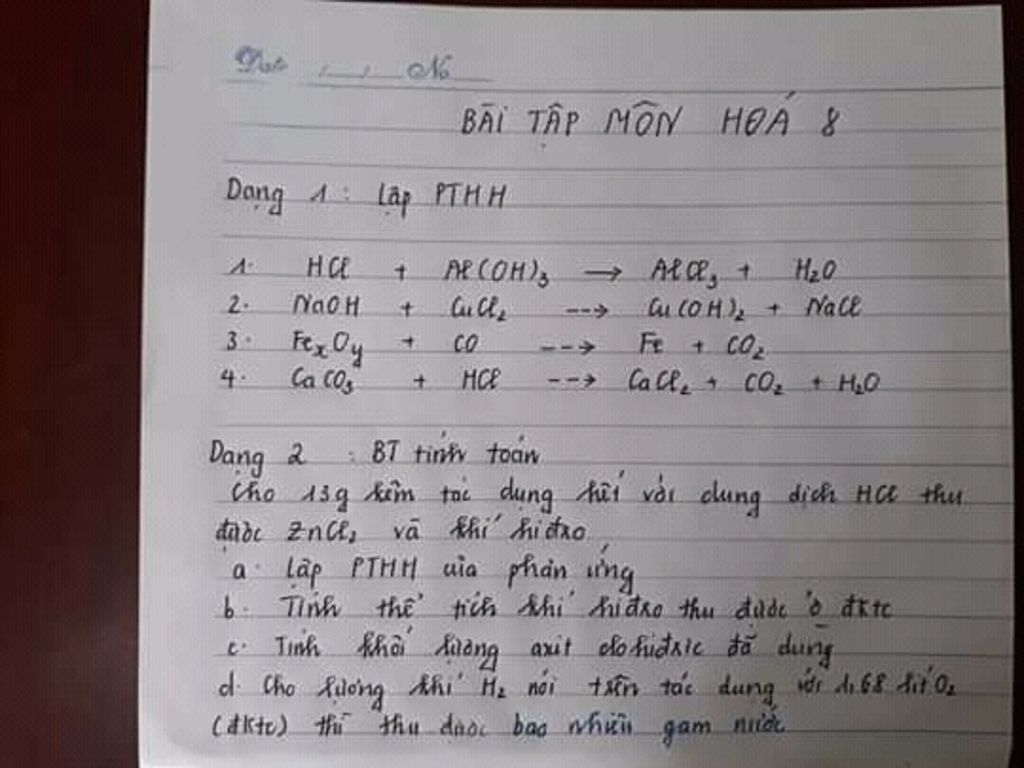 Date / / No
BÀI TẬP MÔN HOÁ 8
Dạng 1 : Lập PTHH
1. HCl + Al(OH)₃ → AlCl₃ + H₂O
2. NaOH + CuCl₂ --→ Cu(OH)₂ + NaCl
3. FeₓOy + CO --→ Fe + CO₂
4. CaCO₃ + HCl --→ CaCl₂ + CO₂ + H₂O
Dạng 2 : BT tính toán
Cho 13g kẽm tác dụng hết với dung dịch HCl thu
được ZnCl₂ và khí hiđro
a. Lập PTHH của phản ứng
b. Tính thể tích khí hiđro thu được ở đktc
c. Tính khối lượng axit clohiđric đã dùng
d. Cho lượng khí H₂ nói trên tác dụng với 1,68 lít O₂
(đktc) thì thu được bao nhiêu gam nước